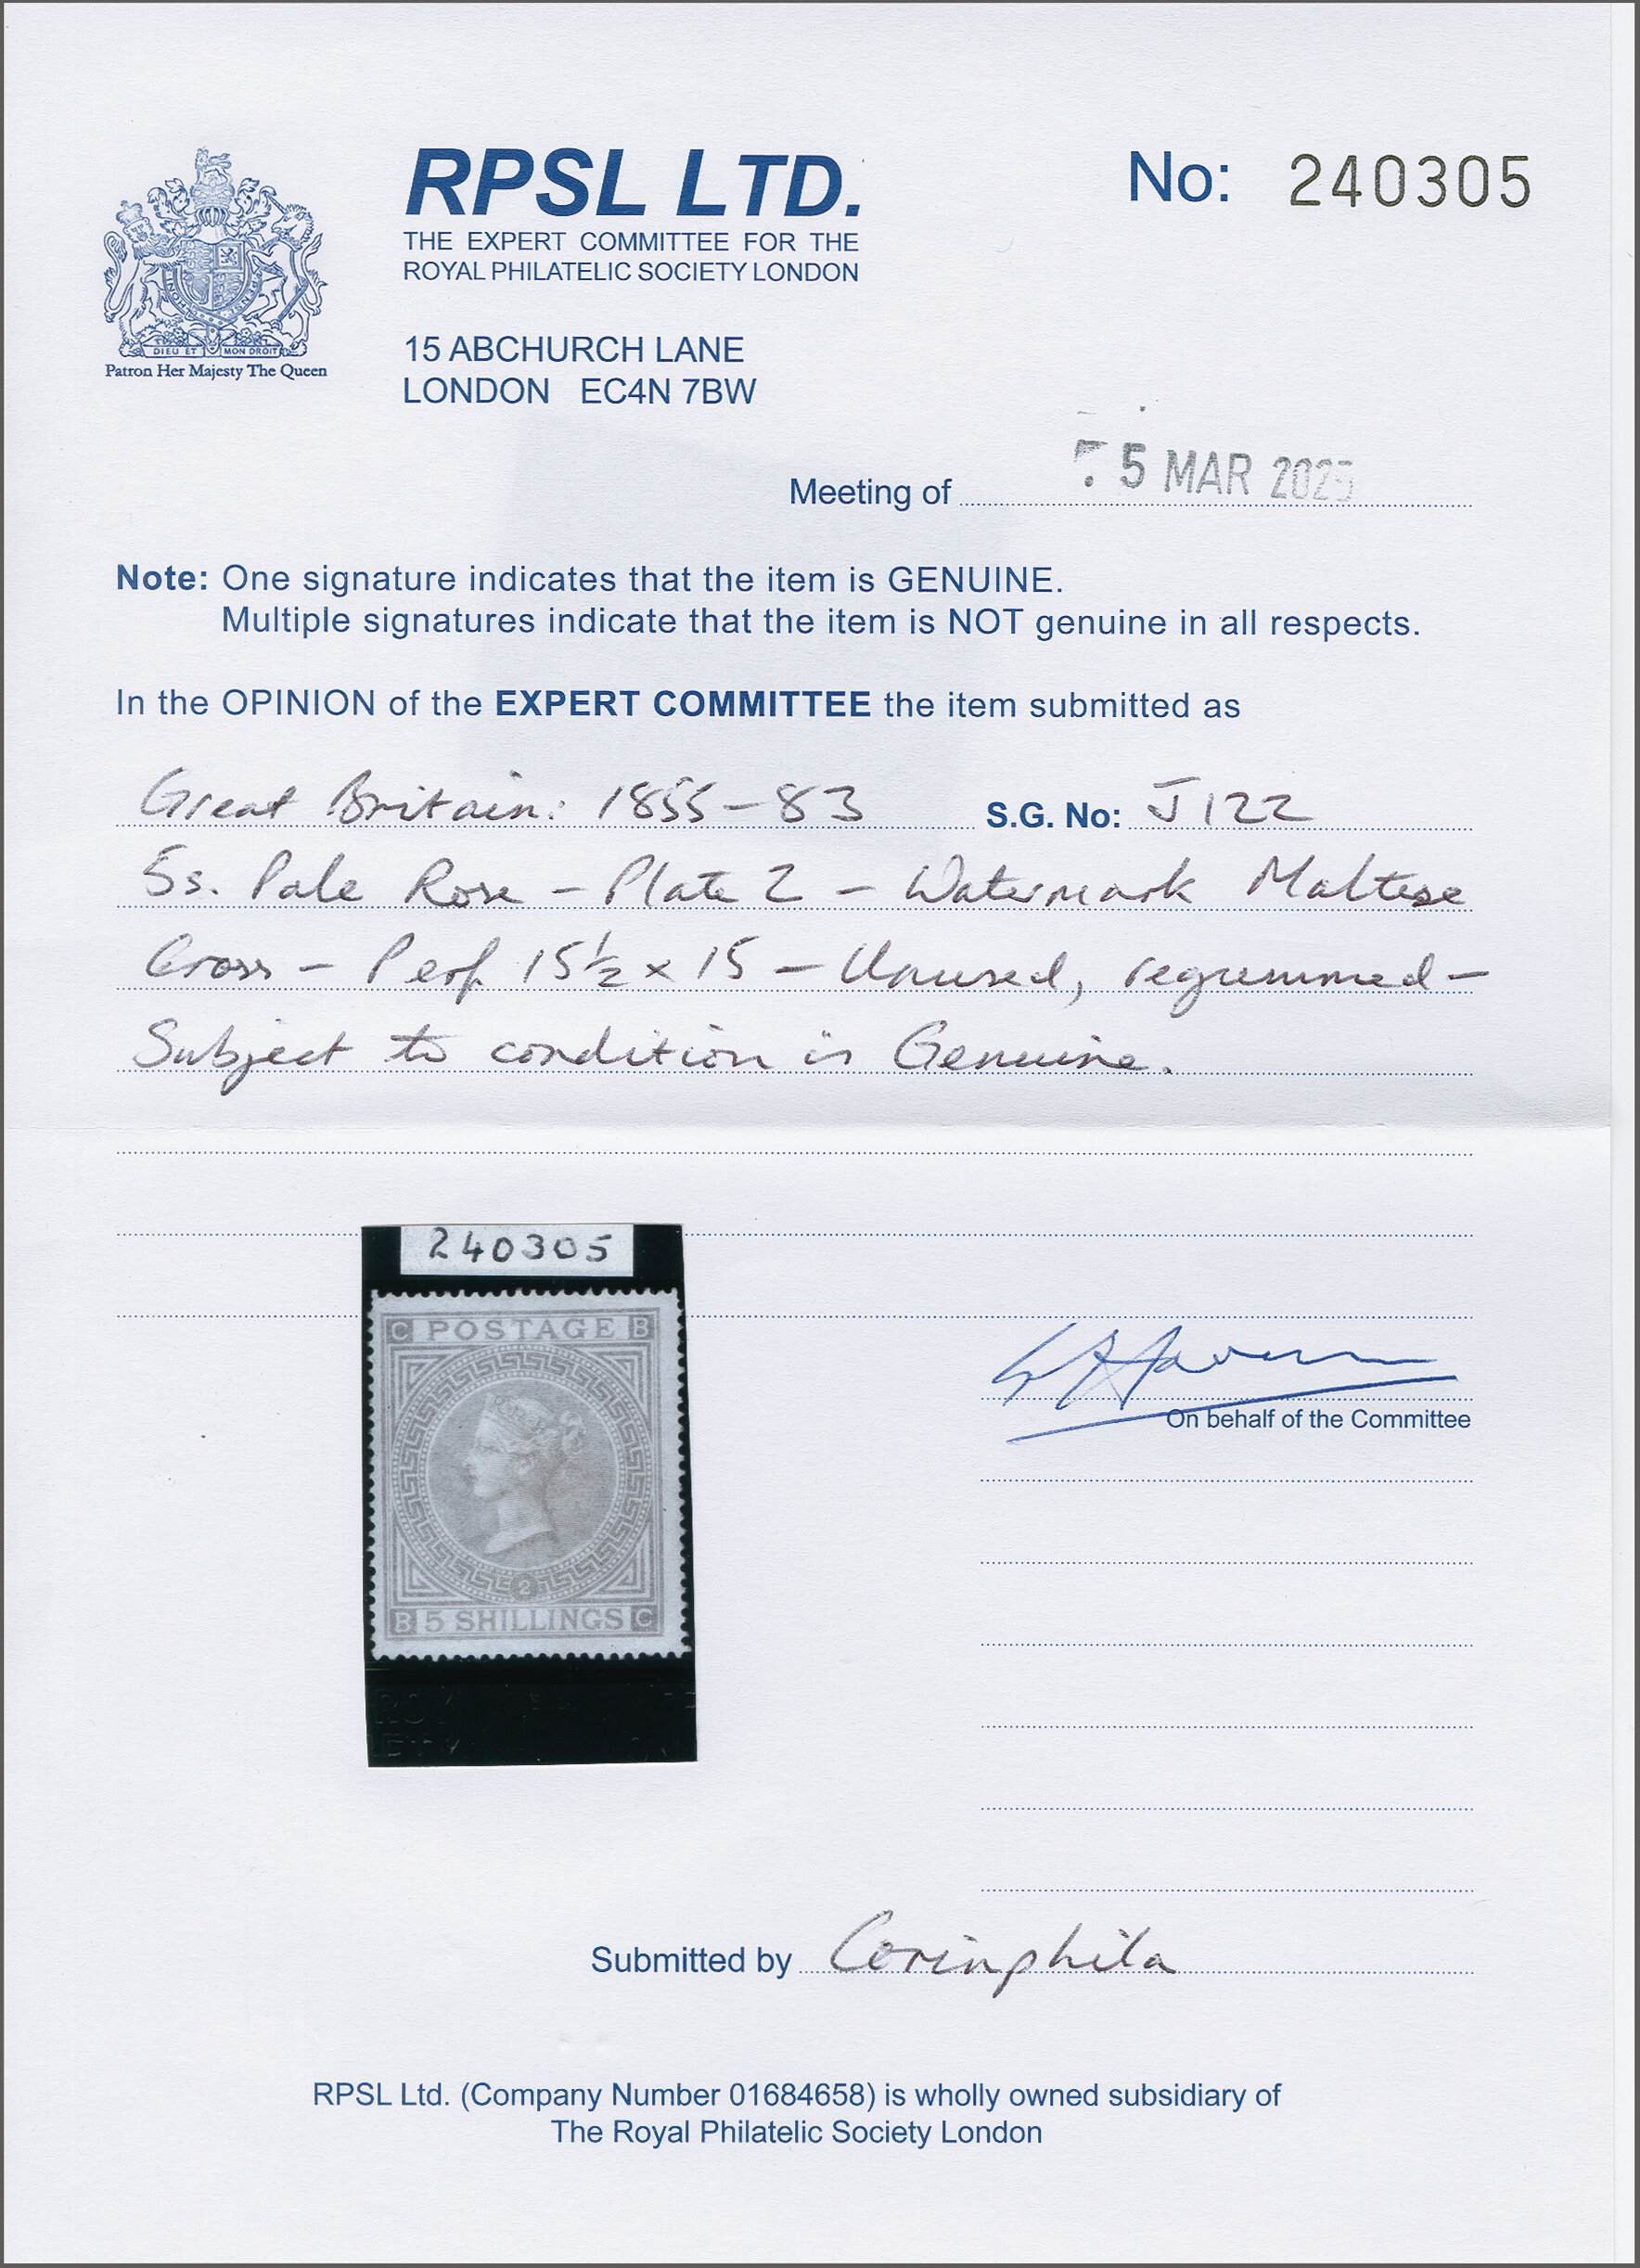 RPSL LTD.
THE EXPERT COMMITTEE FOR THE
ROYAL PHILATELIC SOCIETY LONDON
15 ABCHURCH LANE
LONDON EC4N 7BW
No: 240305
DIEU ET MON DROIT
Patron Her Majesty The Queen
Meeting of 5 MAR 2025
Note: One signature indicates that the item is GENUINE.
Multiple signatures indicate that the item is NOT genuine in all respects.
In the OPINION of the EXPERT COMMITTEE the item submitted as
Great Britain: 1855-83 S.G. No: J122
5s. Pale Rose - Plate 2 - Watermark Maltese
Cross - Perf 15½ x 15 - Unused, regummed -
Subject to condition is Genuine.
240305
C POSTAGE B
2
B 5 SHILLINGS C
On behalf of the Committee
Submitted by Corinphila
RPSL Ltd. (Company Number 01684658) is wholly owned subsidiary of
The Royal Philatelic Society London